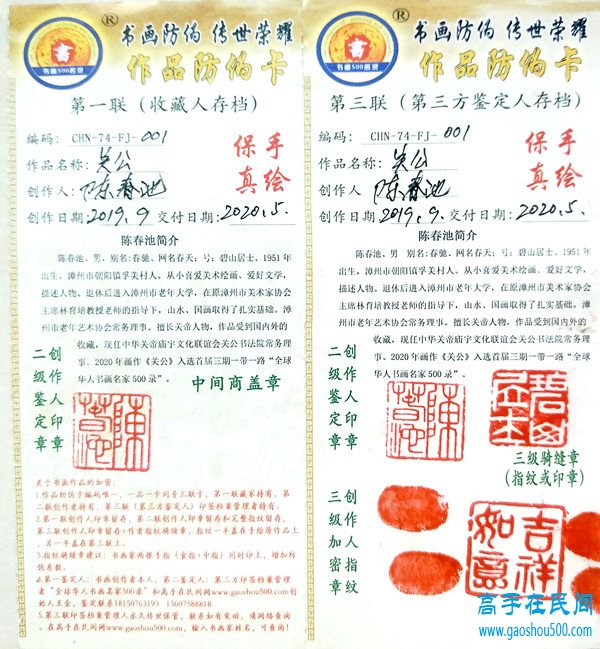 书画500名录
®
书画防伪 传世荣耀
作品防伪卡
第一联（收藏人存档）
编码：CHN-74-FJ-001
作品名称：关公
创作人：陈春池
保手
真绘
创作日期2019.9 交付日期：2020.5.
陈春池简介
陈春池、男，别名：春驰、网名春天；号：碧山居士。1951年
出生，漳州市朝阳镇孚美村人。从小喜爱美术绘画、爱好文学，
描述人物。退休后进入漳州市老年大学，在原漳州市美术家协会
主席林育培教授老师的指导下，山水、国画取得了扎实基础。漳
州市老年艺术协会常务理事。擅长关帝人物，作品受到国内外的
收藏。现任中华关帝庙宇文化联谊会关公书法院常务理
事。2020年画作《关公》入选首届三期一带一路“全球
华人书画名家500录”。
二级鉴定章
创作人印章
中间商盖章
关于书画作品的加密：
1.作品防伪卡编码唯一，一品一卡同号三联卡，第一联藏家持有，第
二联创作者持有，第三联（第三方鉴定人）印签档案管理者持有。
2.第一联创作人印章留存，第二联创作人印章留存和完整指纹留存，
第三联创作人印章留存+作者指纹骑缝章，指纹一半盖在手绘原作品上
，另一半盖在第三联上。
3.指纹骑缝章建议：书画家两根手指（食指+中指）同时印上，增加防
伪系数。
4.第一鉴定人：书画创作者本人，第二鉴定：第三方印签档案管理
者“全球华人书画名家500录”和高手在民间网www.gaoshou500.com创
始人王金，鉴定联系18150763193 13607588816
5.第三联印签档案管理人永久传世保管，联系如有变动，请网络查询
，在高手在民间网www.gaoshou500.com，输入书画家姓名，可查询！
书画500名录
®
书画防伪 传世荣耀
作品防伪卡
第三联（第三方鉴定人存档）
编码：CHN-74-FJ-001
作品名称：关公
创作人 陈春池
保手
真绘
创作日期：2019.9. 交付日期：2020.5.
陈春池简介
陈春池、男 别名：春驰、网名春天；号：碧山居士。1951年
出生，漳州市朝阳镇孚美村人。从小喜爱美术绘画、爱好文学，
描述人物。退休后进入漳州市老年大学，在原漳州市美术家协会
主席林育培教授老师的指导下，山水、国画取得了扎实基础。漳
州市老年艺术协会常务理事。擅长关帝人物，作品受到国内外的
收藏。现任中华关帝庙宇文化联谊会关公书法院常务理
事。2020年画作《关公》入选首届三期一带一路“全球
华人书画名家500录”。
二级鉴定章
创作人印章
三级骑缝章
（指纹或印章）
三级加密章
创作人指纹
吉祥
如意
高手在民间
www.gaoshou500.com